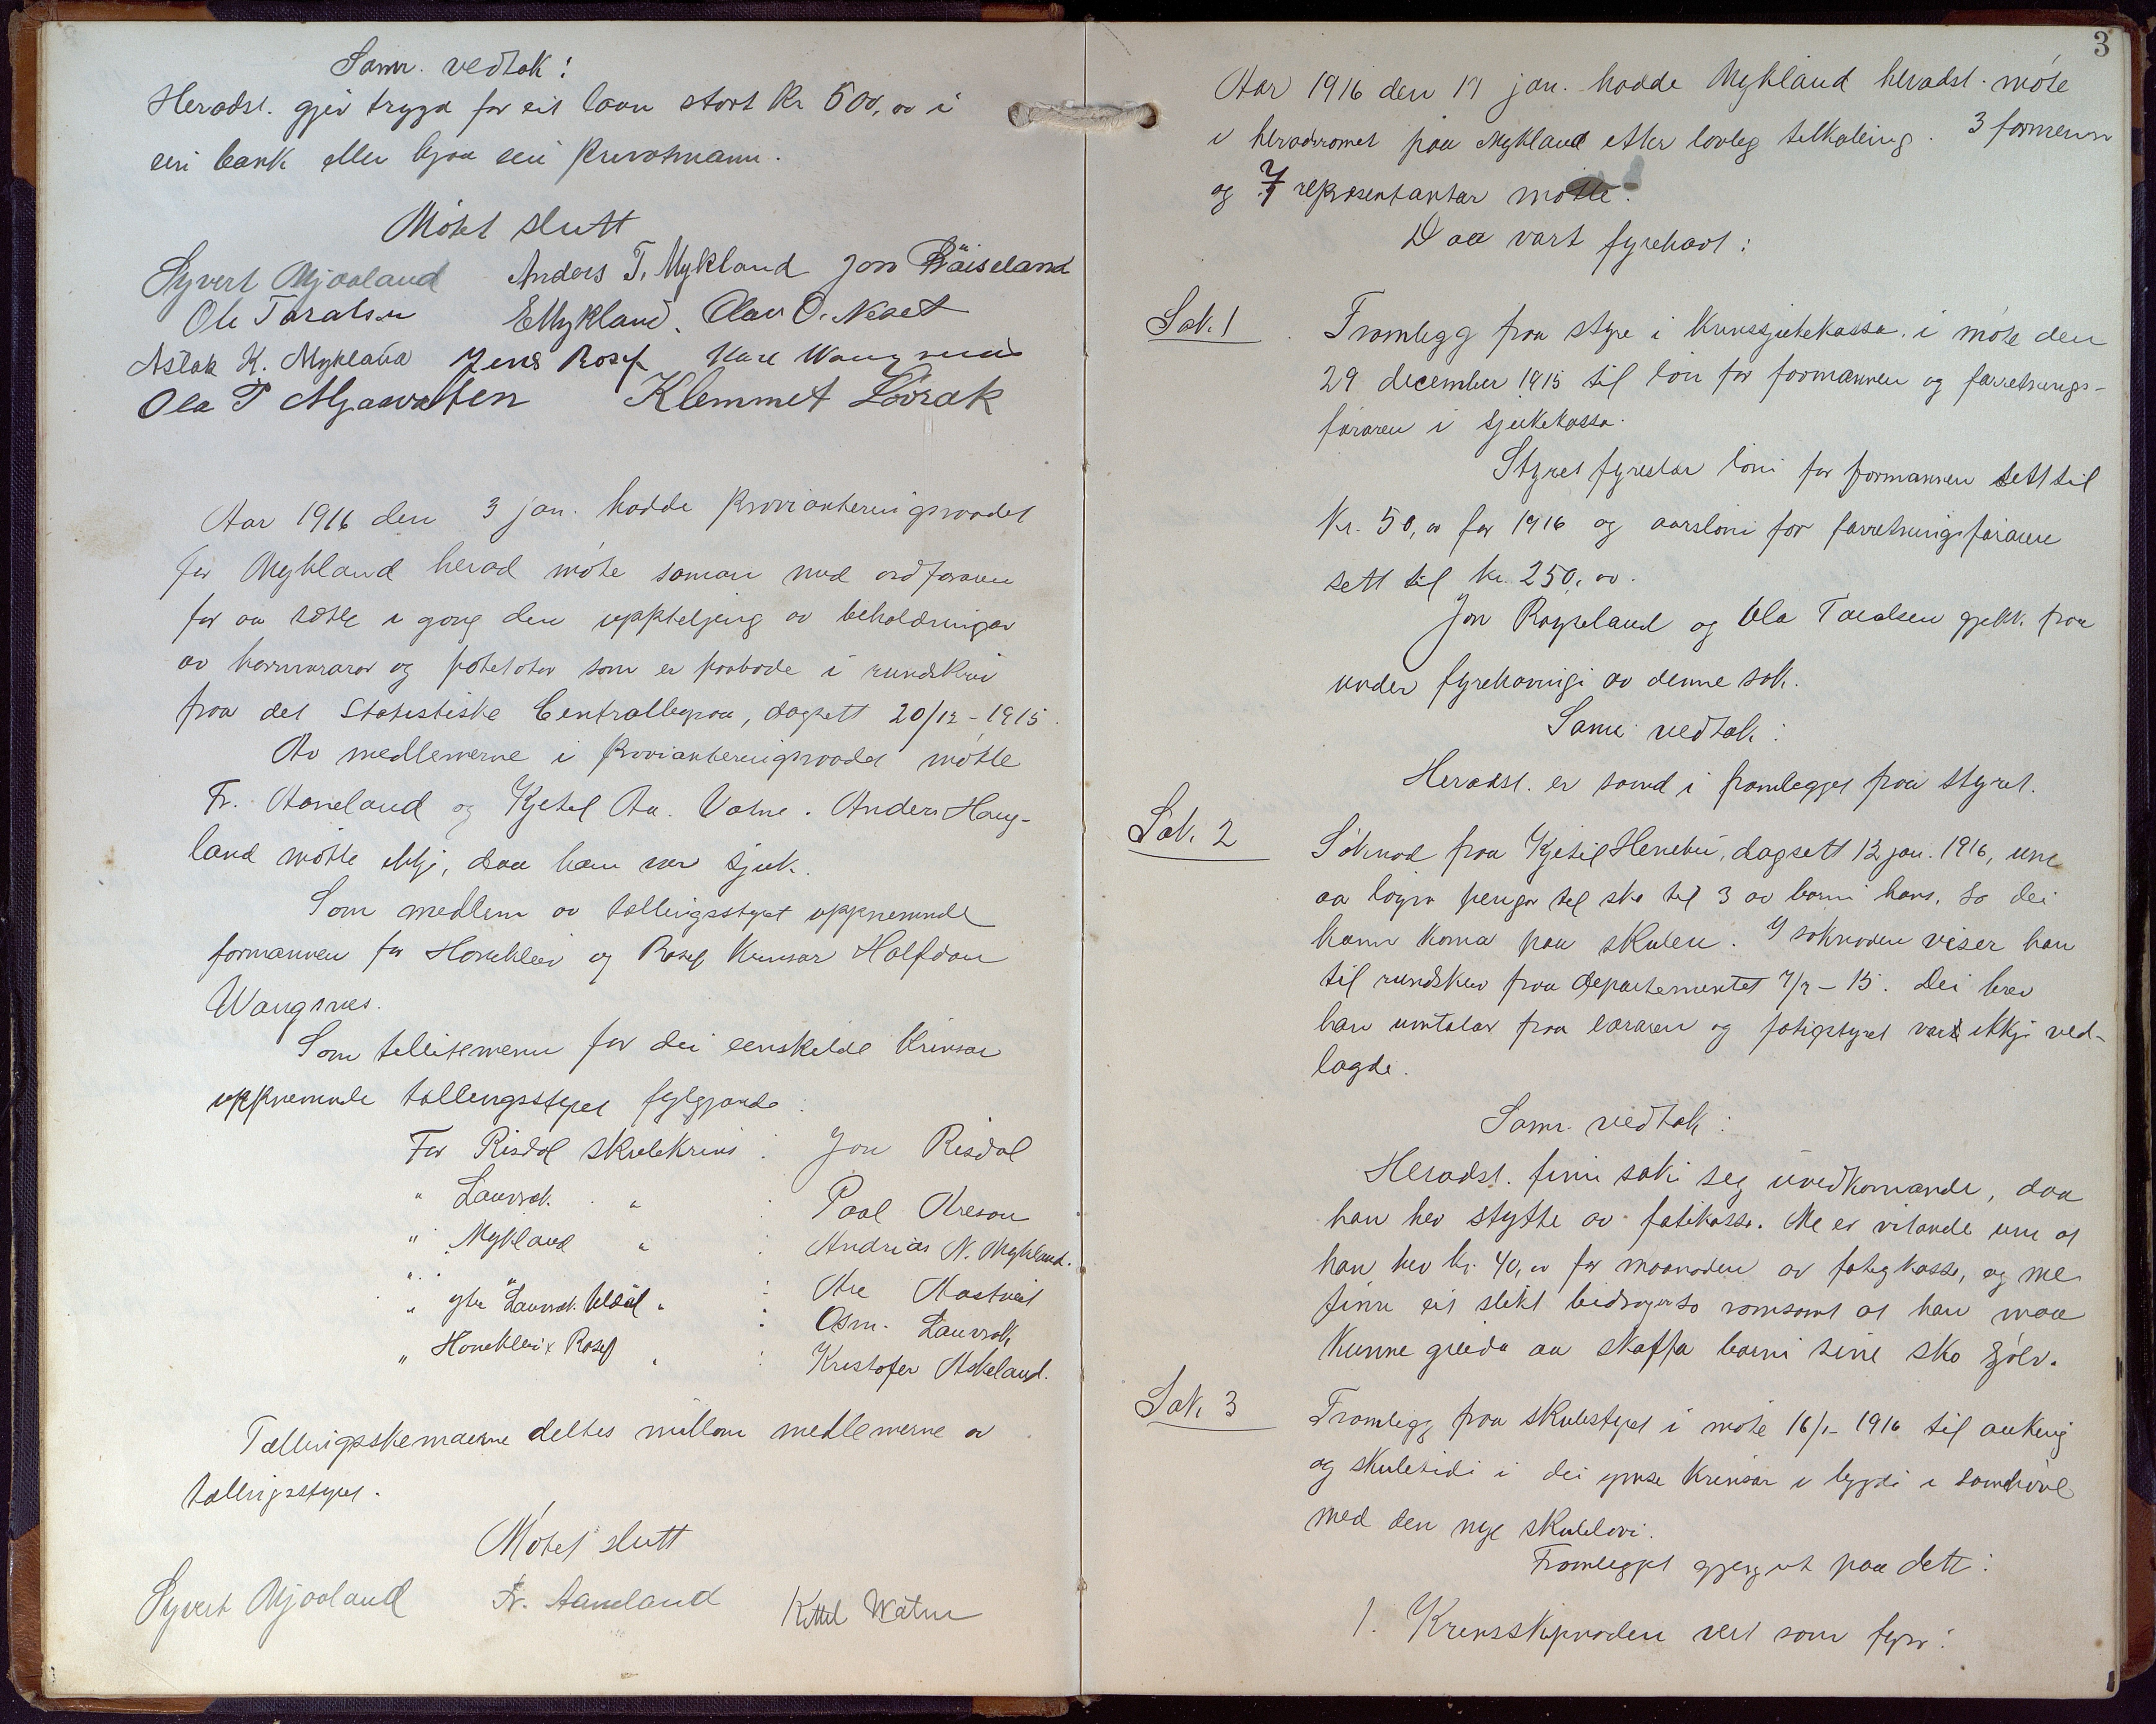 Samr. vedtak:
Heradst. gjev trygd for eit laan stort kr 500,00 i
ein bank eller hjaa ein privatmann.
Møtet slutt
Syvert Mjaaland Anders T. Mykland Jon Røiseland
Ole Taralsen E Mykland. Olav O. Neset
Aslak K. Mykland Jens Rosef Halv Wangsnes
Ola T Mjaavatten Klemmet Lövrak
Aar 1916 den 3 jan. hadde provianteringsraadet
for Mykland herad møte saman med ordføraren
for aa sætte i gong den uppteljing av beholdningar
av kornvarar og potetotor som er paabode i rundskriv
fraa det Statistiske Centralbyraa, dagsett 20/12-1915.
Av medlemerne i provianteringsraadet møtte
Fr. Aaneland og Kjetil Aa. Vatne. Anders Haug-
land møtte ikkje, daa han var sjuk.
Som medlem av tællingsstyret uppnemnde
formannen for Honeklev og Rosef krinsar Halfdan
Wangsnes.
Som tellesmenn for dei einskilde krinsar
uppnemnde tællingsstyret fylgjande:
For Risdal skulekrins: Jon Risdal
" Lauvrak " : Paal Aresen
" Mykland " : Andrias N. Mykland.
" ytre Lauvrak Uldal " : Are Aastveit
: Osm. Lauvrak
" Honeklev & Rosef " : Kristofer Askeland.
Tællingsskemaerne deltes millom medlemerne av
tællingsstyret.
Møtet slutt
Syvert Mjaaland Fr. Aaneland Kittel Watne
3
Aar 1916 den 17 jan. hadde Mykland heradst. møte
i heradsromet paa Mykland etter lovleg tilkaling. 3 formenn
og 7 representantar møtte.
Daa vart fyrehavt:
Sak. 1 Framlegg fraa styre i krinssjukekassa i møte den
29 december 1915 til løn for formannen og forretnings-
føraren i sjukekassa.
Styret fyreslær løni for formannen sett til
kr. 50,00 for 1916 og aarsløni for forretningsføraren
sett til kr. 250,00.
Jon Røyseland og Ola Taralsen gjekk fraa
under fyrehavingi av denne sak.
Samr. vedtak:
Heradst. er samd i framlegget fraa styret.
Sak. 2 Søknad fraa Kjetil Henebu, dagsett 12 jan. 1916, um
aa løyva pengar til sko til 3 av borni hans, so dei
kann koma paa skulen. I søknaden viser han
til rundskriv fraa departementet 7/7-15. Dei brev
han umtalar fraa læraren og fatigstyret vart ikkje ved-
lagde.
Samr. vedtak:
Heradst. finn saki seg uvedkomande, daa
han hev stytte av fatikassa. Me er vitande um at
han hev kr. 40,00 for maanaden av fatigkassa, og me
finn eit slikt bidrag er so romsamt at han maa
kunne greida aa skaffa borni sine sko sjølv.
Sak. 3 Framlegg fraa skulestyret i møte 16/1-1916 til auking
og skuletidi i dei ymse krinsar i bygdi i samhøve
med den nye skulelovi.
Framlegget gjeng ut paa dette:
1. Krinsskipnaden vert som fyrr: